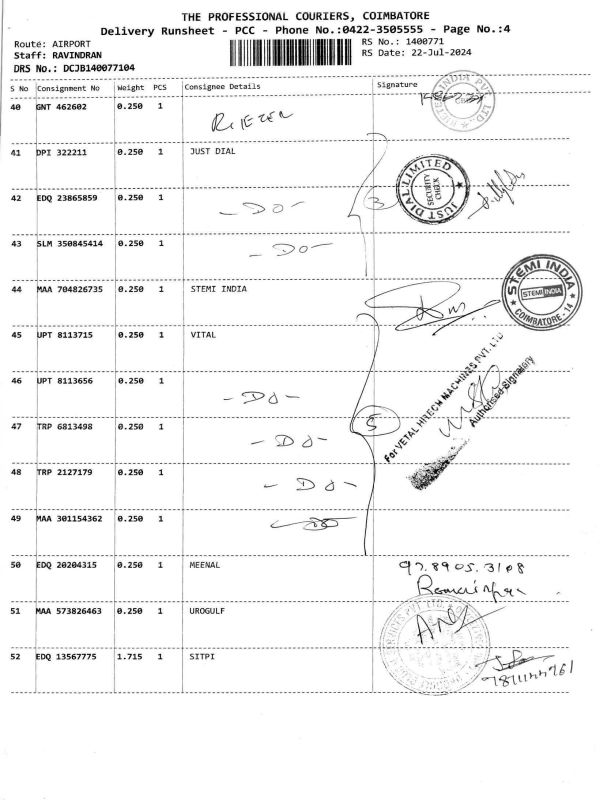 THE PROFESSIONAL COURIERS, COIMBATORE
Delivery Runsheet - PCC - Phone No.:0422-3505555 - Page No.:4
Route: AIRPORT
Staff: RAVINDRAN
DRS No.: DCJB140077104
RS No.: 1400771
RS Date: 22-Jul-2024
S No Consignment No Weight PCS Consignee Details Signature
40 GNT 462602 0.250 1
41 DPI 322211 0.250 1 JUST DIAL
JUST DIAL LIMITED
SECURITY CHECK
3
42 EDQ 23865859 0.250 1 - DO -
43 SLM 350845414 0.250 1 - DO -
44 MAA 704826735 0.250 1 STEMI INDIA
STEMI INDIA
STEMI INDIA
COIMBATORE - 14
45 UPT 8113715 0.250 1 VITAL
For VETAL HITECH MACHINES PVT. LTD
Authorised Signatory
46 UPT 8113656 0.250 1 - DO -
5
47 TRP 6813498 0.250 1 - DO -
48 TRP 2127179 0.250 1 - DO -
49 MAA 301154362 0.250 1
50 EDQ 20204315 0.250 1 MEENAL
97.8905.3108
51 MAA 573826463 0.250 1 UROGULF
52 EDQ 13567775 1.715 1 SITPI